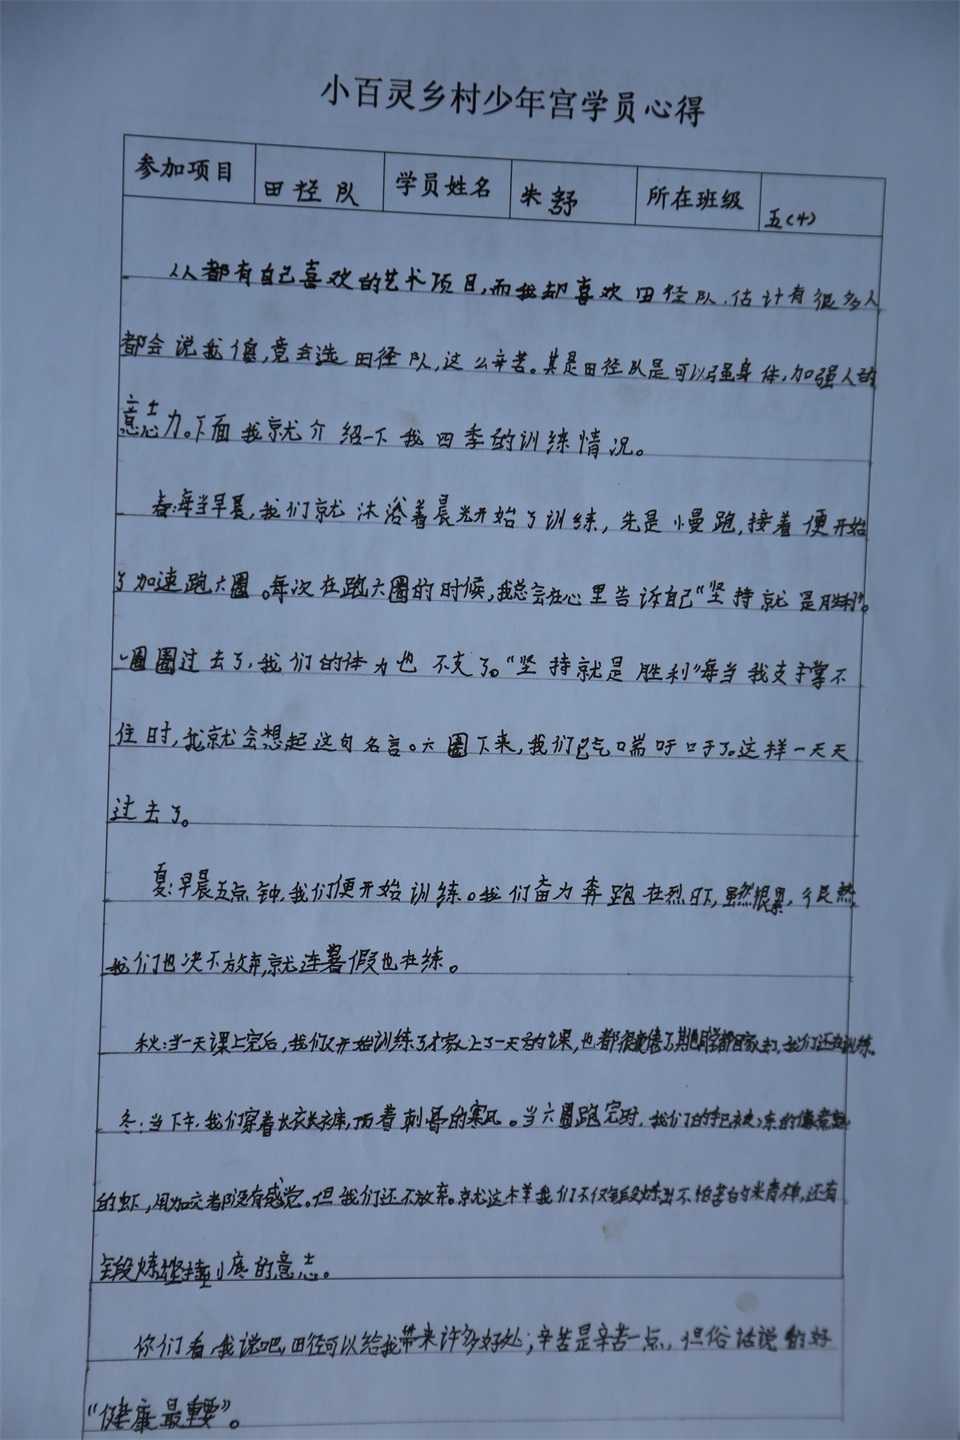 小百灵乡村少年宫学员心得
参加项目 田径队 学员姓名 朱舒 所在班级 五(4)
人都有自己喜欢的艺术项目,而我却喜欢田径队.估计有很多人
都会说我傻,竟会选田径队,这么辛苦。其是田径队是可以强身体,加强人的
意志力。下面我就介绍一下我四季的训练情况。
春:每当早晨,我们就沐浴着晨光开始了训练,先是慢跑,接着便开始
了加速跑大圈。每次在跑大圈的时候,我总会在心里告诉自己“坚持就是胜利”。
一圈圈过去了,我们的体力也不支了。“坚持就是胜利”每当我支撑不
住时,我就会想起这句名言。六圈下来,我们已气喘吁吁了。这样一天天
过去了。
夏:早晨五点钟,我们便开始训练。我们奋力奔跑在烈日下,虽然很累,
我们也决不放弃,就连暑假也在练。
秋:当一天课上完后,我们又开始训练了大家上了一天的课,也都很疲倦了,其他同学都回家去了,我们还在训练.
冬:当下午,我们穿着长衣长裤,顶着刺骨的寒风。当六圈跑完时,我们的手已被冻的像煮熟
的虾,用力咬都没有感觉。但我们还不放弃。就这样我们不仅锻炼出不怕苦的精神,还有
锻炼坚持到底的意志。
你们看,我说吧,田径可以给我带来许多好处;辛苦是辛苦一点,但俗话说的好
“健康最重要”。